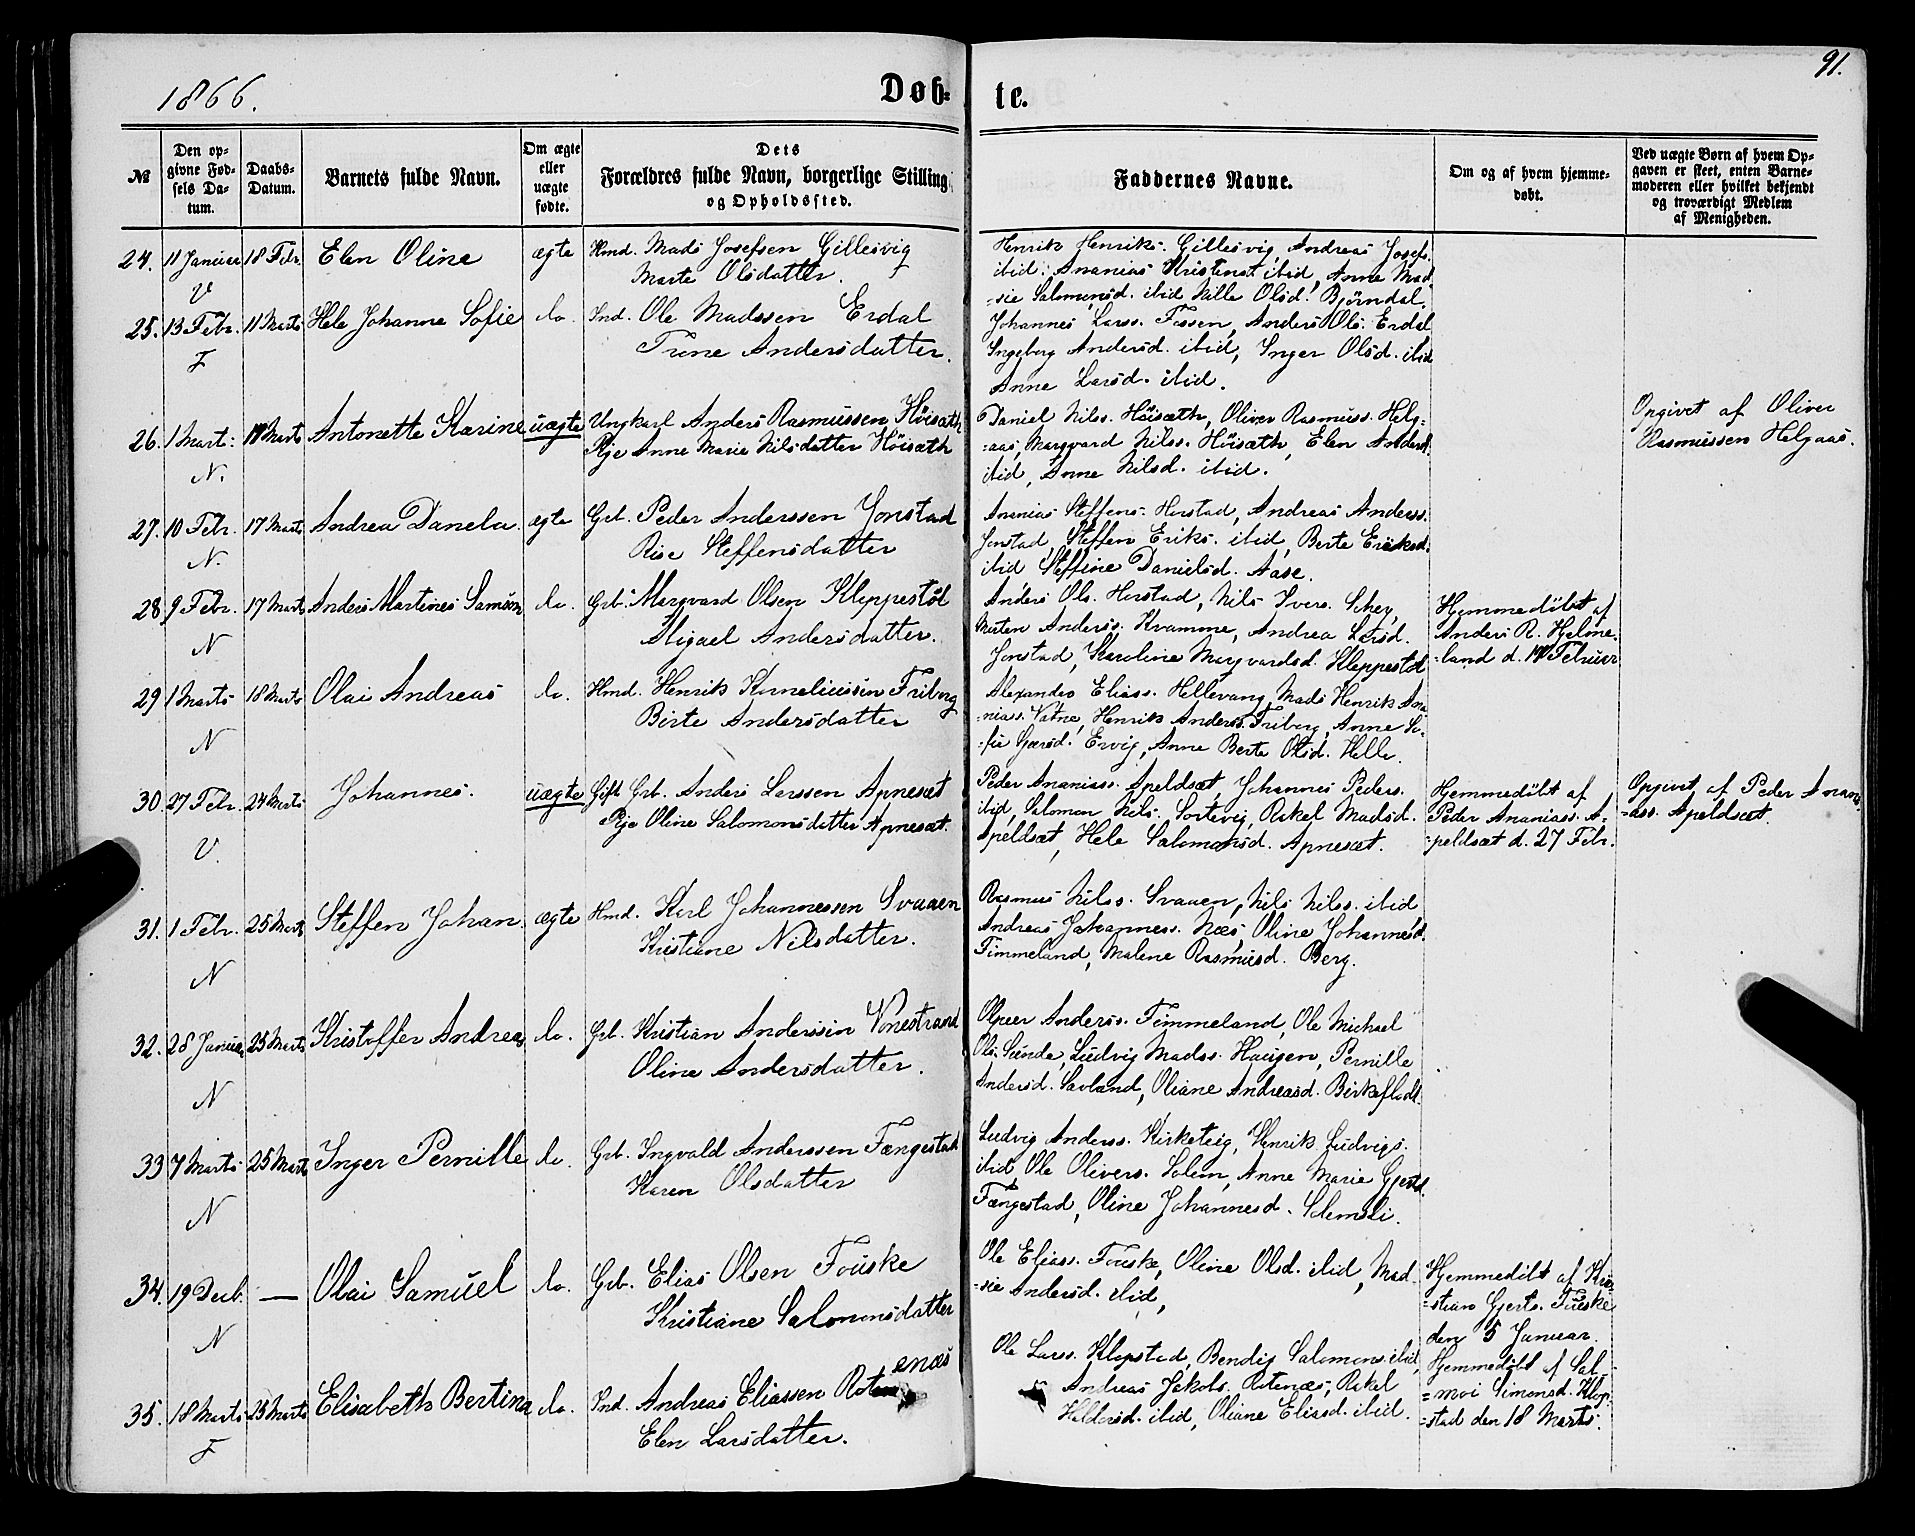 91.
1866.
Døb- te.
№
Den op-
givne Fød-
sels Da-
tum.
Daabs-
Datum.
Barnets fulde Navn.
Om ægte
eller
uægte
fødte.
Dets
Forældres fulde Navn, borgerlige Stilling
og Opholdssted.
Faddernes Navne.
Om og af hvem hjemme-
døbt.
Ved uægte Børn af hvem Op-
gaven er skeet, enten Barne-
moderen eller hvilket bekjendt
og troværdigt Medlem
af Menigheden.
24. 11 Januar 18 Febr. Elen Oline ægte Hmd. Mads Josefsen Gillesvig
V
Marte Olsdatter.
Henrik Henriks. Gillesvig, Andreas Josefs.
ibid. Ananias Kristenst ibid, Anne Mad-
-sie Salomonsd. ibid Nille Olsd. Bjørndal.
25. 13 Febr. 11 Marts Hele Johanne Sofie do. Ind. Ole Madssen Erdal
F
Trine Andersdatter.
Johannes Larss. Fossen, Anders Ols. Erdal
Ingeborg Andersd. ibid, Inger Olsd. ibid
Anne Larsd. ibid.
26. 1 Mart: 18 Marts Antonette Karine uægte Ungkarl Anders Rasmussen Höisæth
N.
Pige Anne Marie Nilsdatter Höisæth
Daniel Nilss. Höisæth, Oliver Rasmuss. Helg-
-aas, Margvard Nilss. Höisæth, Elen Andersd.
ibid, Anne Nilsd. ibid.
Opgivet af Oliver
Rasmussen Helgaas.
27. 10 Febr. 17 Marts Andrea Danela. ægte Grb. Peder Anderssen Jonstad
N.
Rise Steffensdatter
Ananias Steffens. Horstad, Andreas Anderss.
Jonstad, Steffen Eriks. ibid, Berte Eriksd.
ibid Steffine Danielsd. Aase.
28. 9 Febr. 17 Marts Anders Martines Samson do. Grb. Margvard Olsen Kleppestöl
N
Abigael Andersdatter.
Anders Ols. Horstad, Nils Ivers. Schey,
Morten Anderss. Kvamme, Andrea Larsd.
Jonstad, Karoline Margvardsd. Kleppestöl
Hjemmedöbt af
Anders R. Hjelme-
-land d. Februar
29 1 Marts 18 Marts Olai Andreas do. Hmd. Henrik Korneliussen Friborg
N
Birte Andersdatter
Alexander Eliass. Hellevang, Mads Henrik Ana-
-niass. Vatne, Henrik Anderss. Friborg, Anne So-
-fie Ervig, Anne Berte Olsd. Helle.
30 27 Febr. 24 Marts Johannes. uægte Gift Grb. Anders Larssen Apnesæt
V.
Pige Oline Salomonsdatter Apnesæt.
Peder Ananiass. Apeldsæt, Johannes Peders.
ibid, Salomon Nils. Sortevig, Rakel Madsd.
Apeldsæt, Hele Salomonsd. Apnesæt.
Hjemmedöbt af
Peder Ananiass. A-
-peldsæt d. 27 Febr.
Opgivet af Peder Anani-
-ass. Apeldsæt.
31. 1 Febr. 25 Marts Steffen Johan. ægte Hmd. Karl Johannessen Svaaen
N
Kristiane Nilsdatter.
Rasmus Nilss. Svaaen, Nils Nilss. ibid
Andreas Johanness. Næs, Oline Johannesd.
Timmeland, Malene Rasmusd. Berg.
32. 28 Januar 25 Marts Kristoffer Andreas do. Grb. Kristian Anderssen Vonestrand
N
Oline Andersdatter.
Anderss. Timmeland, Ole Michael
Ols. Sunde, Ludvig Madss. Haugen, Pernille
Andersd. Savland, Oliane Andreasd. Birkeflodt.
33 7 Marts 25 Marts Inger Pernille do. Grb. Ingvald Anderssen Fængestad
N
Karen Olsdatter
Ludvig Anderss. Kirketeig, Henrik Ludvigs.
ibid Ole Olivers. Solem, Anne Marie Gjertsd.
Fængestad, Oline Johannesd. Solemsli.
34. 19 Decb. — Olai Samuel do. Grb. Elias Olsen Föuske
N
Kristiane Salomonsdatter
Ole Eliass. Föuske, Oline Olsd. ibid, Mad-
-sie Andersd. ibid,
Hjemmedöbt af Kri-
-stian Gjerts. Föuske
den 5 Januar.
35. 18 Marts 25 Marts Elisabeth Bertina do. Ind. Andreas Eliassen Rotenæs
F
Elen Larsdatter.
Ole Larss. Klopstad, Bendix Salomons. ibid,
Andreas Jakobs. Rotenæs, Rakel
Haldorsd. ibid, Oliane Eliasd. ibid.
Hjemmedöbt af Sal-
-moi Simonsd. Klop-
-stad den 18 Marts.